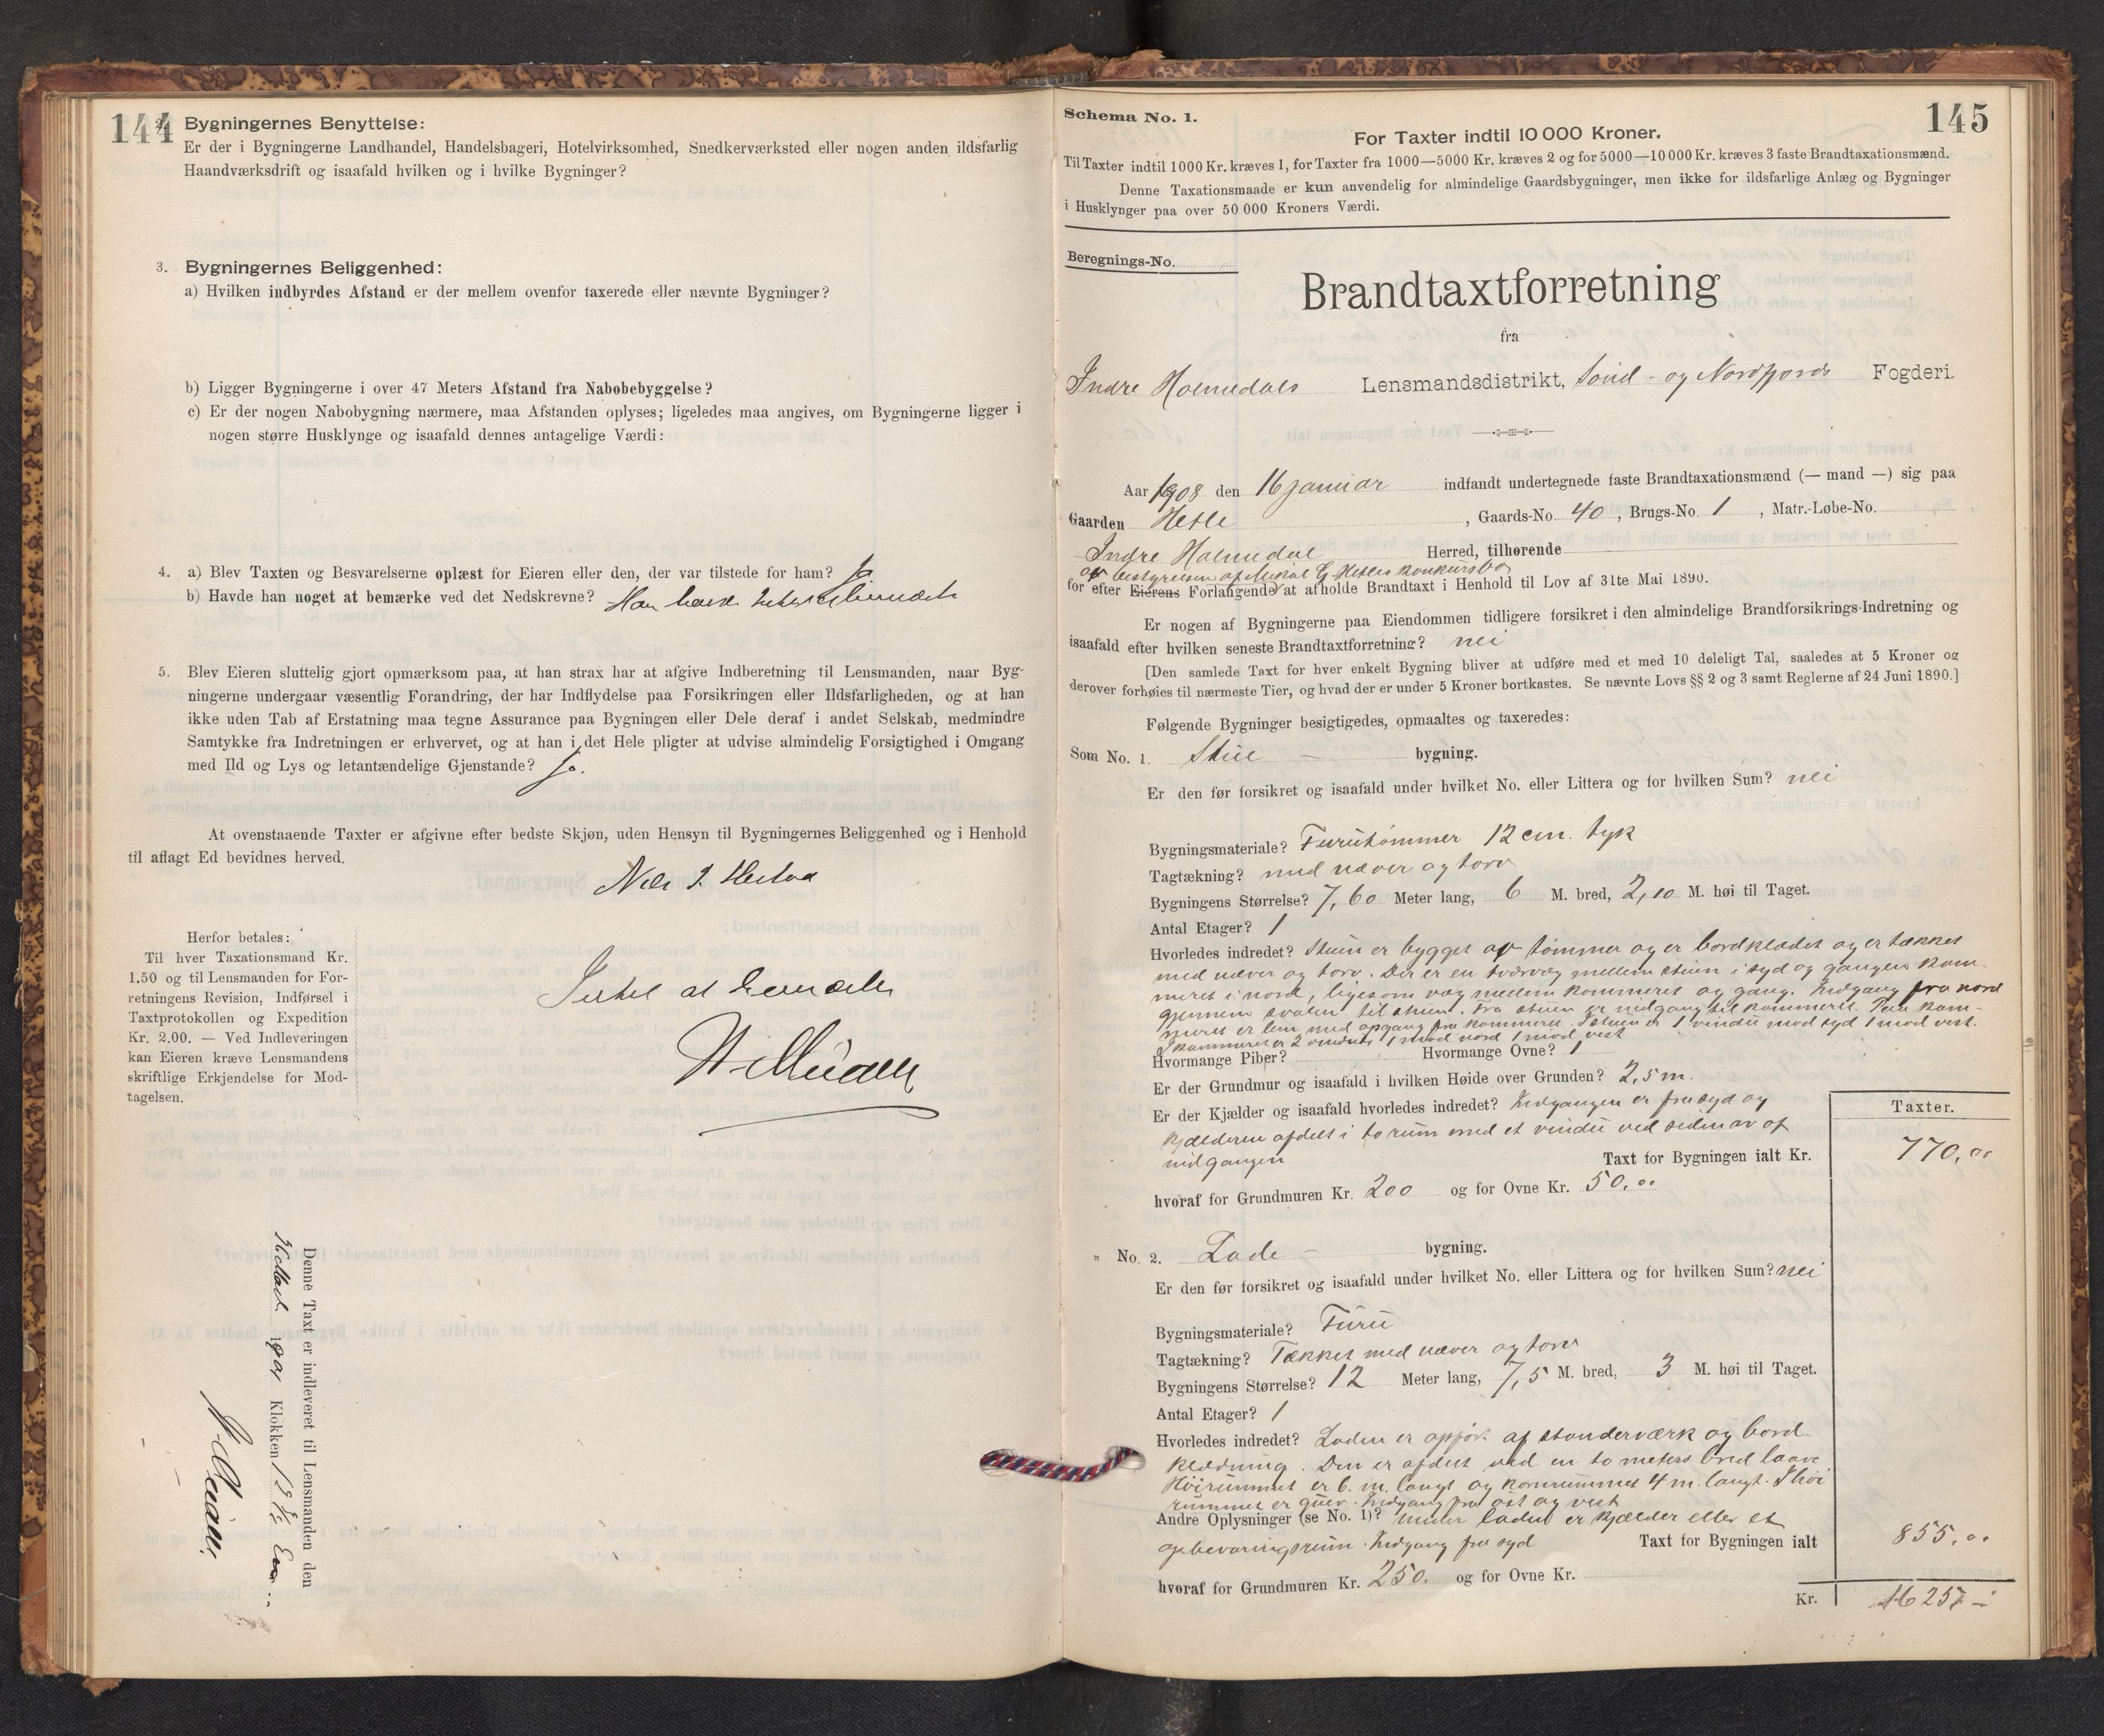 144
2. Bygningernes Benyttelse:
Er der i Bygningerne Landhandel, Handelsbageri, Hotelvirksomhed, Snedkerværksted eller nogen anden ildsfarlig
Haandværksdrift og isaafald hvilken og i hvilke Bygninger?
3. Bygningernes Beliggenhed:
a) Hvilken indbyrdes Afstand er der mellem ovenfor taxerede eller nævnte Bygninger?
b) Ligger Bygningerne i over 47 Meters Afstand fra Nabobebyggelse?
c) Er der nogen Nabobygning nærmere, maa Afstanden oplyses; ligeledes maa angives, om Bygningerne ligger i
nogen større Husklynge og isaafald dennes antagelige Værdi:
4. a) Blev Taxten og Besvarelserne oplæst for Eieren eller den, der var tilstede for ham? Ja
b) Havde han noget at bemærke ved det Nedskrevne? Han havde Intet at bemærke
5. Blev Eieren sluttelig gjort opmærksom paa, at han strax har at afgive Indberetning til Lensmanden, naar Byg-
ningerne undergaar væsentlig Forandring, der har Indflydelse paa Forsikringen eller Ildsfarligheden, og at han
ikke uden Tab af Erstatning maa tegne Assurance paa Bygningen eller Dele deraf i andet Selskab, medmindre
Samtykke fra Indretningen er erhvervet, og at han i det Hele pligter at udvise almindelig Forsigtighed i Omgang
med Ild og Lys og letantændelige Gjenstande? Ja.
At ovenstaaende Taxter er afgivne efter bedste Skjøn, uden Hensyn til Bygningernes Beliggenhed og i Henhold
til aflagt Ed bevidnes herved.
Nils J.
Herfor betales:
Til hver Taxationsmand Kr.
1.50 og til Lensmanden for For-
retningens Revision, Indførsel i
Taxtprotokollen og Expedition
Kr. 2.00. — Ved Indleveringen
kan Eieren kræve Lensmandens
skriftlige Erkjendelse for Mod-
tagelsen.
Intet at bemærke
Denne Taxt er indleveret til Lensmanden den
Klokken
145
Schema No. 1.
For Taxter indtil 10 000 Kroner.
Til Taxter indtil 1000 Kr. kræves 1, for Taxter fra 1000—5000 Kr. kræves 2 og for 5000—10 000 Kr. kræves 3 faste Brandtaxationsmænd.
Denne Taxationsmaade er kun anvendelig for almindelige Gaardsbygninger, men ikke for ildsfarlige Anlæg og Bygninger
i Husklynger paa over 50 000 Kroners Værdi.
Beregnings-No.
Brandtaxtforretning
fra
Indre Holmedals Lensmandsdistrikt, Sønd- og Nordfjords Fogderi.
Aar 1908 den 16 januar indfandt undertegnede faste Brandtaxationsmænd (— mand —) sig paa
Gaarden Hetle, Gaards-No. 40, Brugs-No. 1, Matr.-Løbe-No.
Indre Holmedal Herred, tilhørende
av bestyrelsen af Mikal G. Hetles konkursbo
for efter Eierens Forlangende at afholde Brandtaxt i Henhold til Lov af 31te Mai 1890.
Er nogen af Bygningerne paa Eiendommen tidligere forsikret i den almindelige Brandforsikrings-Indretning og
isaafald efter hvilken seneste Brandtaxtforretning? nei
[Den samlede Taxt for hver enkelt Bygning bliver at udføre med et med 10 deleligt Tal, saaledes at 5 Kroner og
derover forhøies til nærmeste Tier, og hvad der er under 5 Kroner bortkastes. Se nævnte Lovs §§ 2 og 3 samt Reglerne af 24 Juni 1890.]
Følgende Bygninger besigtigedes, opmaaltes og taxeredes:
Som No. 1. Stue — bygning.
Er den før forsikret og isaafald under hvilket No. eller Littera og for hvilken Sum? nei
Bygningsmateriale? Furutømmer 12 cm. tyk
Tagtækning? med næver og torv
Bygningens Størrelse? 7,60 Meter lang, 6 M. bred, 2,10 M. høi til Taget.
Antal Etager? 1
Hvorledes indredet? Stuen er bygget av tømmer og er bordklædet og er tækket
med næver og torv. Der er en tværvæg mellem stuen i syd og gangen kam-
meret i nord, ligesom væg mellem kammeret og gang. Indgang fra nord
gjennem svalen til stuen. Fra stuen er indgang til kammeret. Paa kam-
meret er lem med opgang fra kammeret. I stuen er 1 vindu mod syd 1 mod vest.
I kammeret er 2 vinduer 1 mod nord 1 mod vest
Hvormange Piber? Hvormange Ovne? 1
Er der Grundmur og isaafald i hvilken Høide over Grunden? 2,5 m.
Er der Kjælder og isaafald hvorledes indredet? Indgangen er fra syd og
kjælderen afdelt i to rum med et vindu ved siden av
indgangen Taxt for Bygningen ialt Kr.
Taxter.
770,00
hvoraf for Grundmuren Kr. 200 og for Ovne Kr. 50.00
" No. 2. Lade — bygning.
Er den før forsikret og isaafald under hvilket No. eller Littera og for hvilken Sum? nei
Bygningsmateriale? Furu
Tagtækning? Tækket med næver og torv
Bygningens Størrelse? 12 Meter lang, 7,5 M. bred, 3 M. høi til Taget.
Antal Etager? 1
Hvorledes indredet? Laden er opført af standerværk og bord-
klædning. Den er afdelt ved en to meters bred laave
Høirummet er 6. m. langt og kornrummet 4 m. langt. I høi
rummet er gulv. Indgang fra øst og vest
Andre Oplysninger (se No. 1)? Under laden er kjælder eller et
opbevaringsrum. Indgang fra syd Taxt for Bygningen ialt
855,00
hvoraf for Grundmuren Kr. 250. og for Ovne Kr.
Kr.